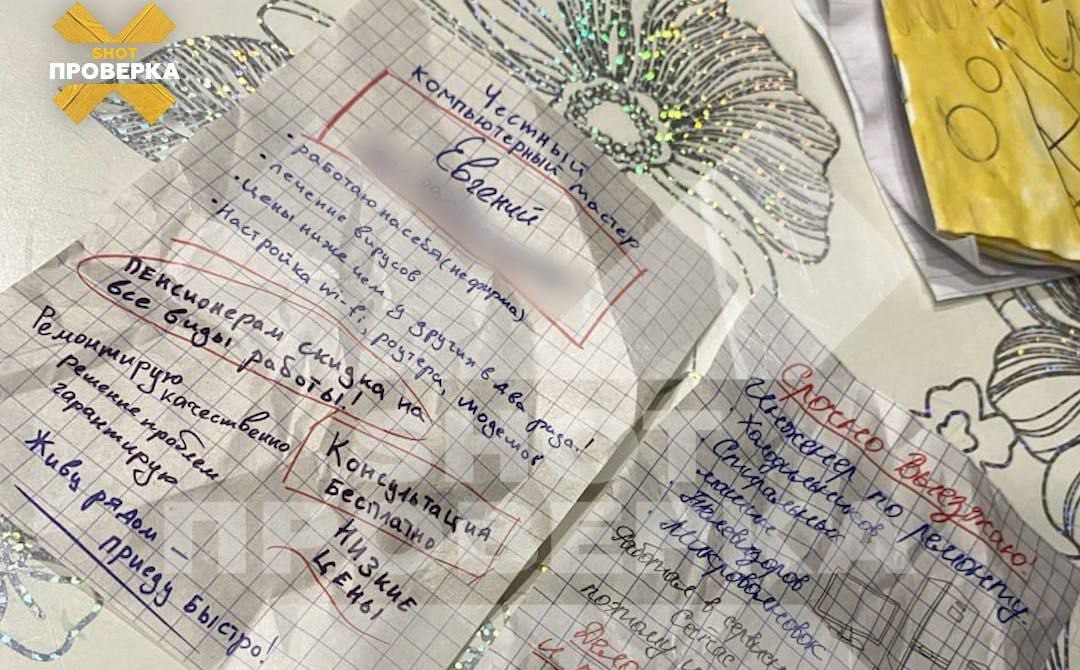 SHOT
ПРОВЕРКА
Честный
компьютерный мастер
Евгений
• работаю на себя (не фирма)
• лечение вирусов
• Цены ниже чем у других в два раза!
• Настройка wi-fi, роутера, модемов
ПЕНСИОНЕРАМ скидка на
все виды работы!
Ремонтирую качественно
решение проблем
гарантирую
Консультация
Бесплатно
Живу рядом –
приеду быстро!
НИЗКИЕ
ЦЕНЫ
Срочно Выезжаю!
Инженер по ремонту
• Холодильников
• Стиральных
машин
• Телевизоров
• Микроволновок
Работал в сервисе
Сейчас
потому
ШОТ
ПРОВЕРКА